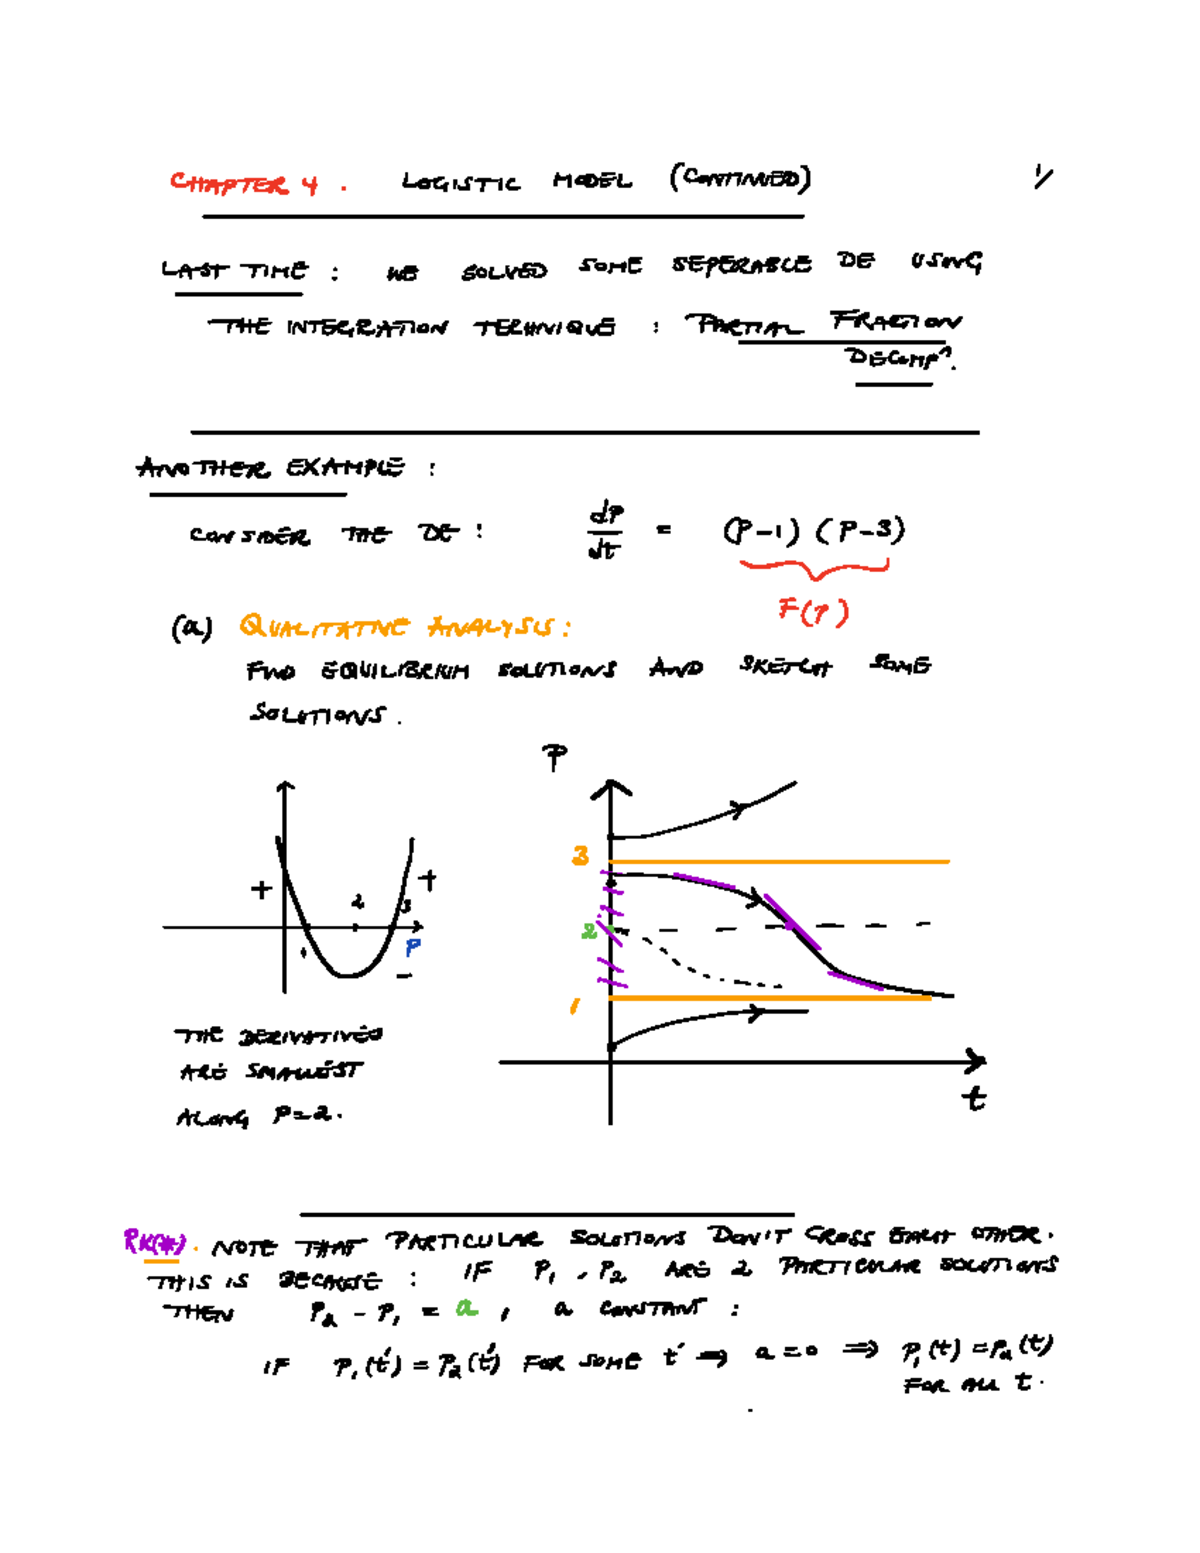 CHAPTER 4 . LOGISTIC MODEL (CONTINUED) 1/
LAST TIME : WE SOLVED SOME SEPERABLE DE USING
THE INTEGRATION TECHNIQUE : PARTIAL FRACTION
DECOMPⁿ.
ANOTHER EXAMPLE :
CONSIDER THE DE : dP/dt = (P-1) (P-3)
F(P)
(a) QUALITATIVE ANALYSIS :
FIND EQUILIBRIUM SOLUTIONS AND SKETCH SOME
SOLUTIONS .
P
3
+ 2 3 +
2
1 P
−
1
t
THE DERIVATIVES
ARE SMALLEST
ALONG P=2.
RK(*). NOTE THAT PARTICULAR SOLUTIONS DON'T CROSS EACH OTHER.
THIS IS BECAUSE : IF P₁ , P₂ ARE 2 PARTICULAR SOLUTIONS
THEN P₂ - P₁ = a , a CONSTANT :
IF P₁(t') = P₂(t') FOR SOME t' ⇒ a=0 ⇒ P₁(t) = P₂(t)
FOR ALL t.